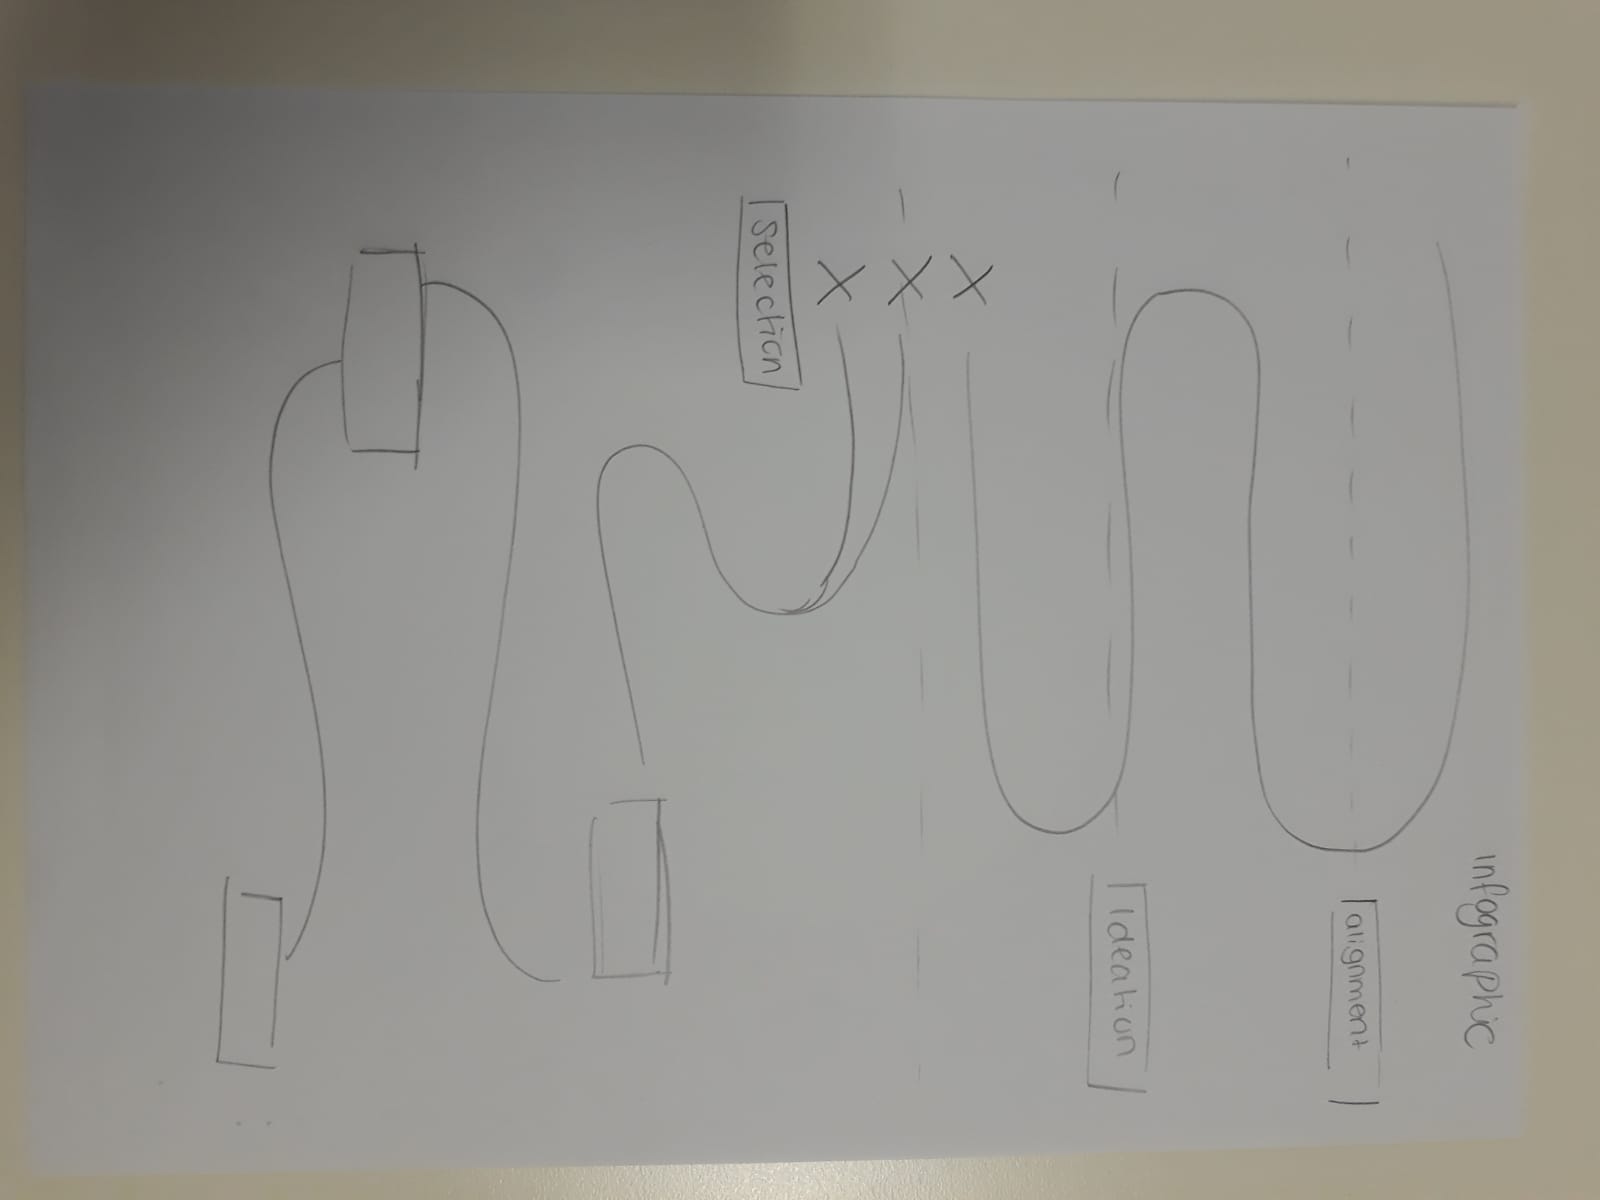 Infographic
alignment
Ideation
Selection